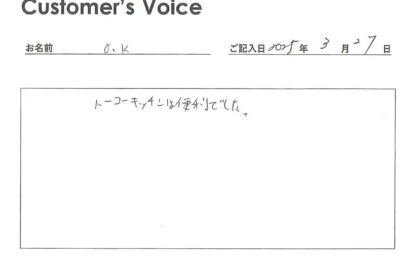 Customer's Voice
お名前 O.K ご記入日 2025 年 3 月 27 日
トーコーキッチンは便利でした。